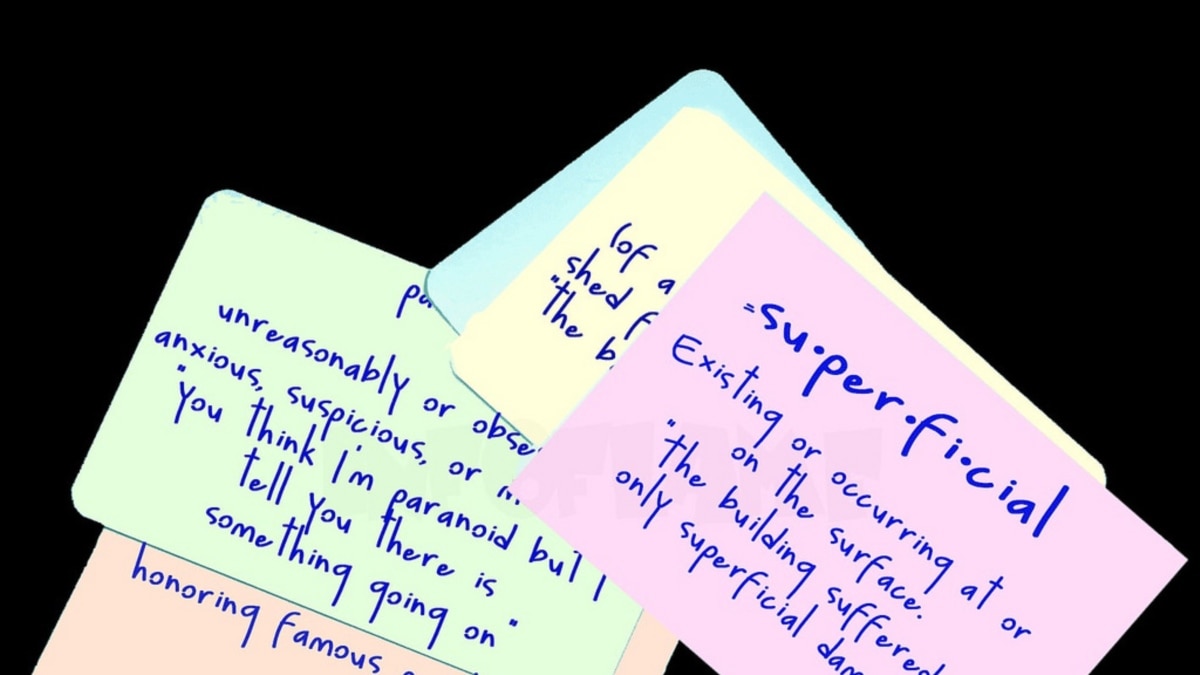 unreasonably or
anxious, suspicious, or
"You think I'm paranoid but I
tell you there is
something going on"
honoring famous
(of a
shed
"the
=su·per·fi·cial
Existing or occurring at or
on the surface.
"the building suffered
only superficial